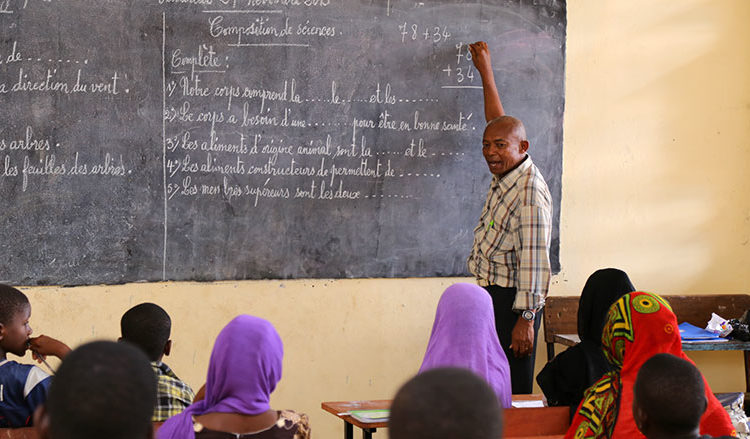 Composition de Sciences.
a direction du vent.
arbres.
les feuilles des arbres.
Complète :
1) Notre corps comprend la ...... le ...... et les ..........
2) Le corps a besoin d'une ......... pour être en bonne santé.
3) Les aliments d'origine animal sont la ...... et le ......
4) Les aliments constructeurs de permettent de ........
5) Les membres supérieurs sont les deux ..........
78 + 34
78
+ 34